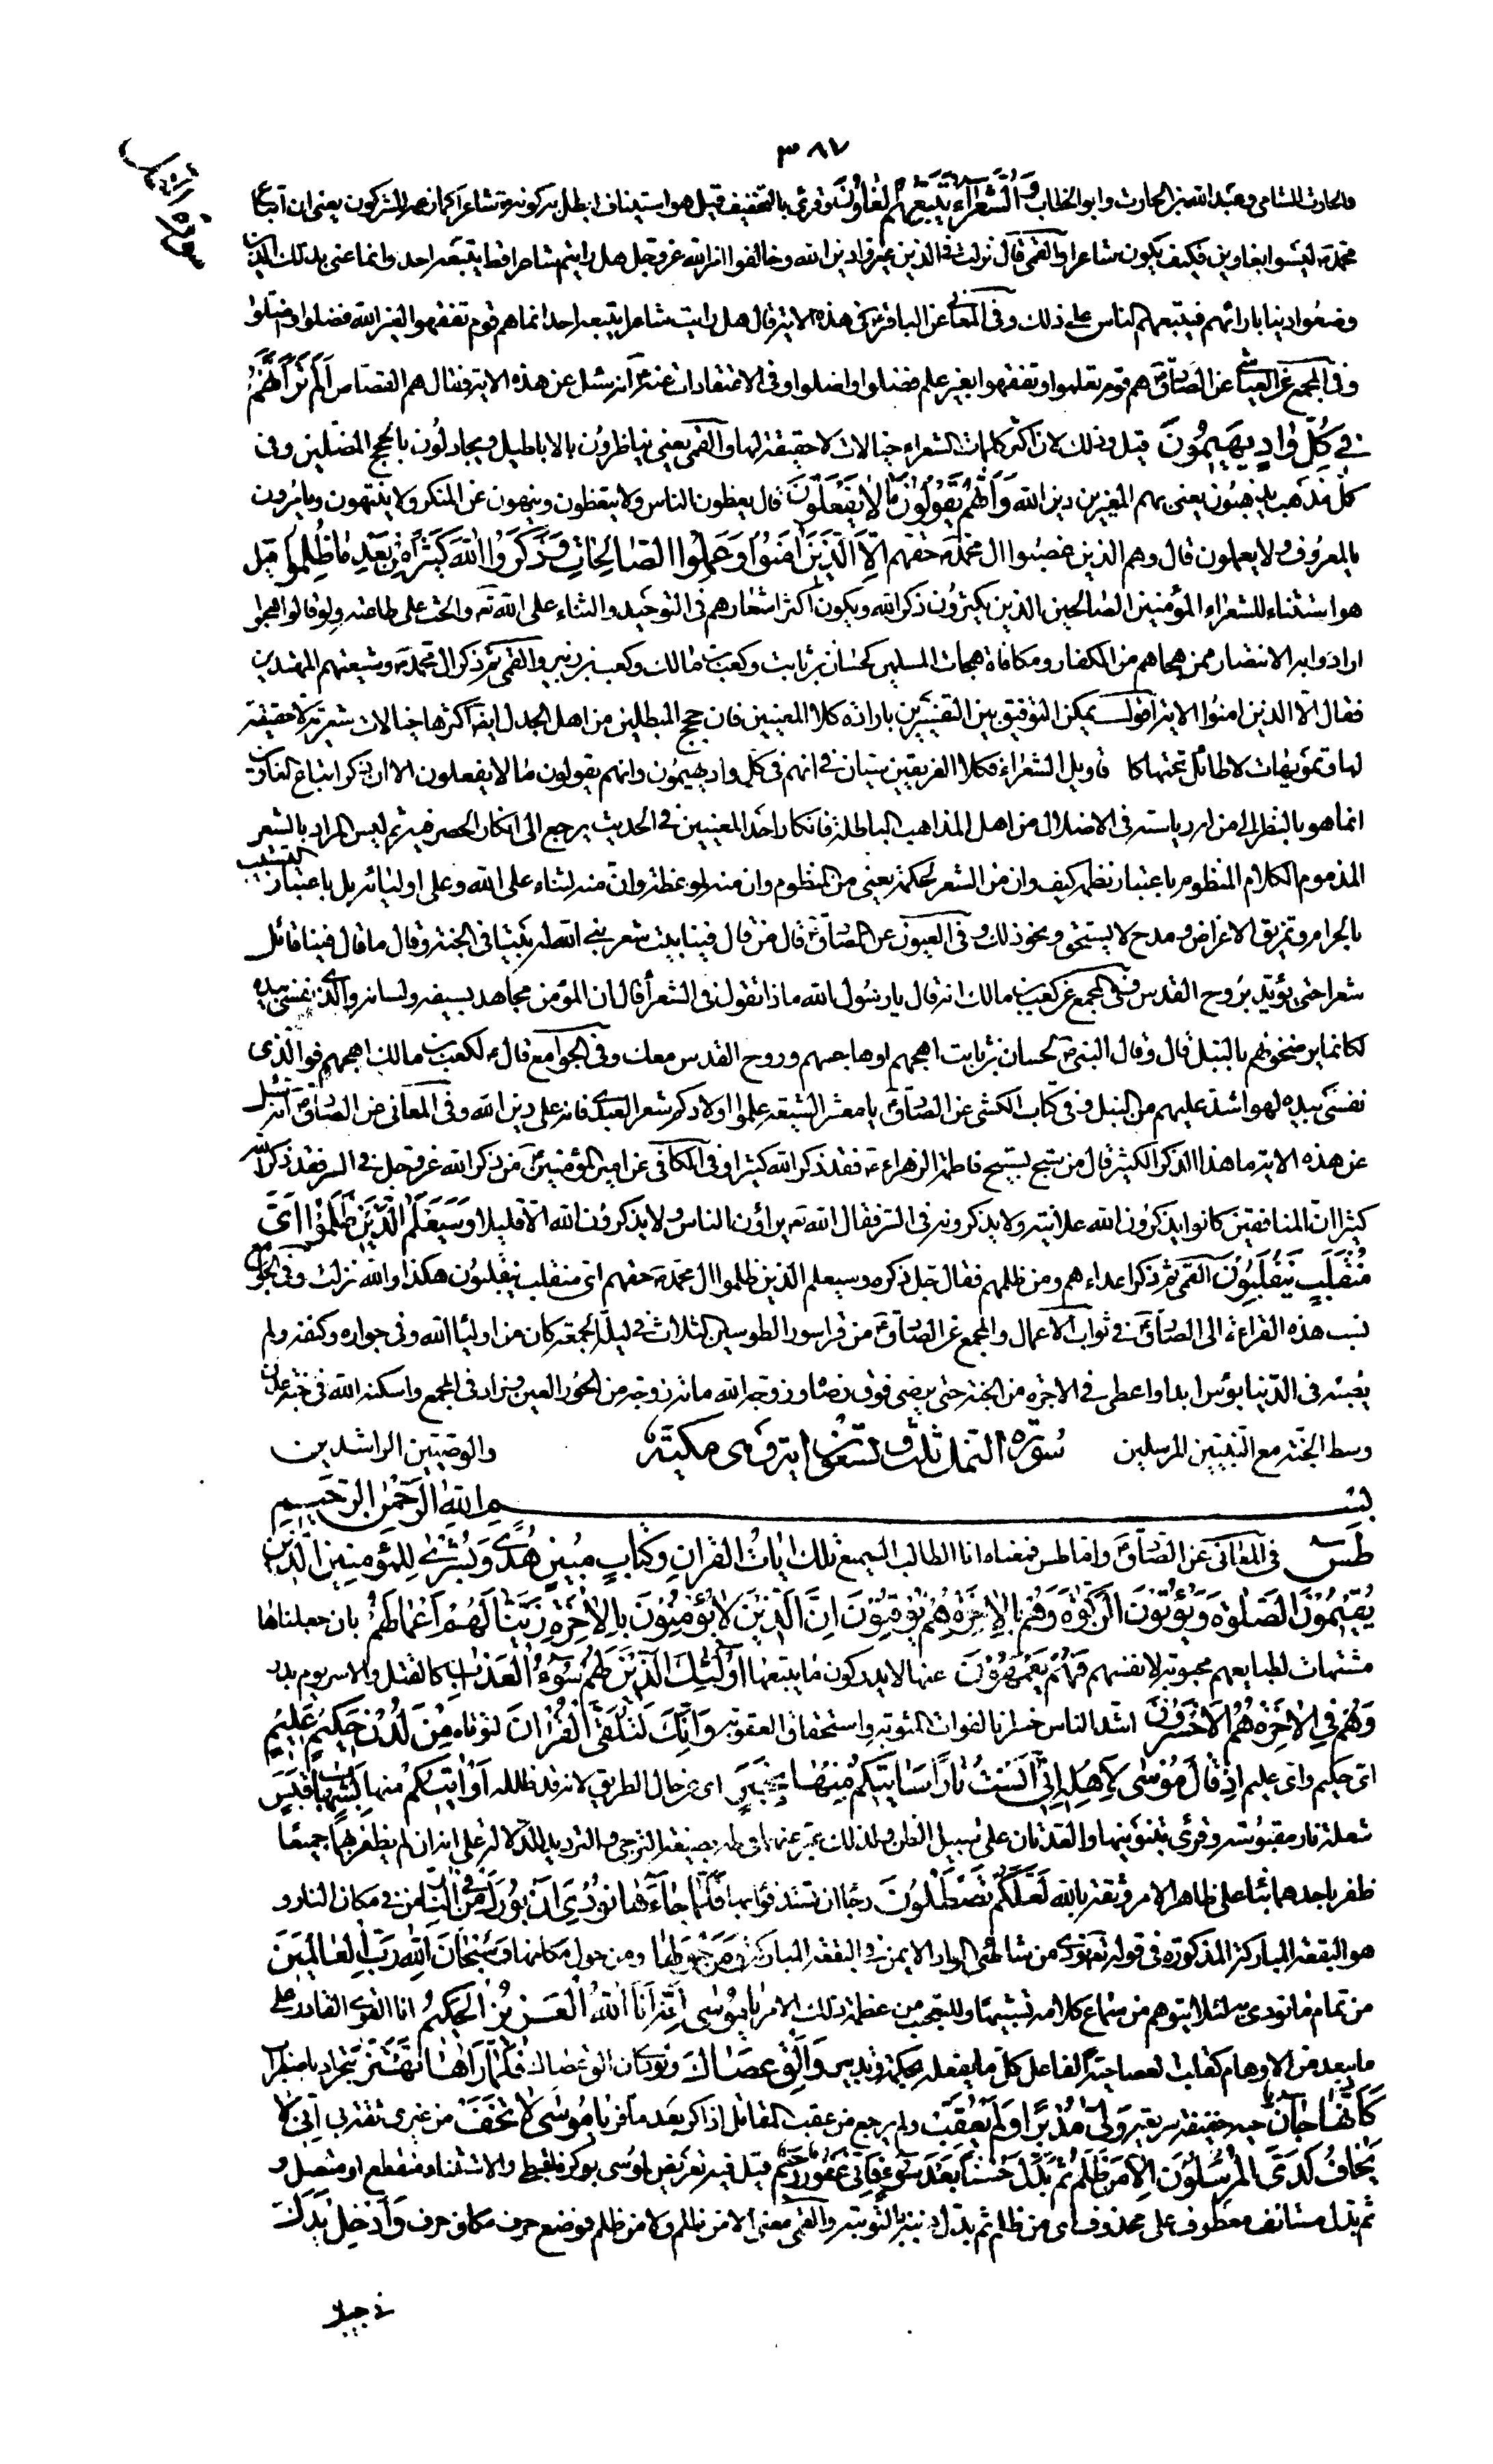 ٣٨٧
والحارث الشامي وعبد الله بن الحارث وابو الخطاب وَالشُّعَرٰاءُ يَتَّبِعُهُمُ الْغاوُنَ وقرئ بالتخفيف قيل هو استيناف ابطل به كونه شاعرا كما زعمه المشركون يعني ان اتباع
سورة الشعراء
محمد ليسوا بغاوين فكيف يكون شاعرا والقمي قال نزلت في الذين غيروا دين الله وخالفوا امر الله عز وجل هل رايتم شاعرا قط يتبعه احد وانما عنى بذلك الذين
وضعوا دينا بارائهم فيتبعهم الناس على ذلك وفي المعاني عن الباقر في هذه الاية قال هل رايت شاعرا يتبعه احد انما هم قوم تفقهوا لغير الله فضلوا واضلوا
وفي المجمع عن العياشي عن الصادق هم قوم تعلموا وتفقهوا بغير علم فضلوا واضلوا وفي الاعتقادات عنه انه سئل عن هذه الاية فقال هم القصاص اَلَمْ تَرَ اَنَّهُمْ
في كُلِّ وٰادٍ يَهيمُونَ قيل وذلك لان اكثر كلمات الشعراء خيالات لا حقيقة لها والقمي يعني يناظرون بالاباطيل ويجادلون بالحجج المضلين وفي
كل مذهب يذهبون يعني بهم المغيرين دين الله وَاَنَّهُمْ يَقُولُونَ مٰا لاٰ يَفْعَلُونَ قال يعظون الناس ولا يتعظون وينهون عن المنكر ولا ينتهون ويامرون
بالمعروف ولا يعملون قال وهم الذين غصبوا ال محمد حقهم اِلاَّ الَّذينَ اٰمَنُوا وَعَمِلُوا الصّٰالِحٰاتِ وَذَكَرُوا اللهَ كَثيراً وَانْتَصَرُوا مِنْ بَعْدِ مٰا ظُلِمُوا قيل
هو استثناء للشعراء المؤمنين الصالحين الذين يكثرون ذكر الله ويكون اكثر اشعارهم في التوحيد والثناء على الله والحث على طاعته ولو قالوا هجوا
ارادوا به الانتصار ممن هجاهم من الكفار ومكافاة هجاة المسلمين كحسان بن ثابت وكعب بن مالك وكعب بن زهير والقمي ثم ذكر ال محمد وشيعتهم المهتدين
فقال الا الذين امنوا الاية اقول يمكن التوفيق بين التفسيرين بارادة كلا المعنيين فان حجج المبطلين من اهل الجدل ايضا اكثرها خيالات شعرية لا حقيقة
لها وتمويهات لا طائل تحتها كا قاويل الشعراء فكلا الفريقين سيان في انهم في كل واد يهيمون وانهم يقولون ما لا يفعلون الا ان ذكر اتباع الغاوين
انما هو بالنظر الى من له رياسة في الاضلال من اهل المذاهب الباطلة فانكار احد المعنيين في الحديث يرجع الى انكار الحصر فيه ثم ليس المراد بالشعر
المذموم الكلام المنظوم باعتبار نظمه كيف وان من الشعر لحكمة يعني من المنظوم وان منه لموعظة وان منه لثناء على الله وعلى اوليائه بل باعتبار التشبيب
بالحرام وتمزيق الاعراض ومدح لا يستحق ونحو ذلك وفي العيون عن الصادق قال من قال فينا بيت شعر بنى الله له بيتا في الجنة وقال ما قال فينا قائل
شعرا حتى يؤيد بروح القدس وفي المجمع عن كعب بن مالك انه قال يا رسول الله ماذا تقول في الشعراء قال ان المؤمن مجاهد بسيفه ولسانه والذي نفسي بيده
لكانما يرضخونهم بالنبل قال وقال النبي لحسان بن ثابت اهجهم او هاجهم وروح القدس معك وفي الجوامع قال لكعب بن مالك اهجهم فوالذي
نفسي بيده لهو اشد عليهم من النبل وفي كتاب الكشي عن الصادق يا معشر الشيعة علموا اولادكم شعر العبدي فانه على دين الله وفي المعاني عن الصادق انه سئل
عن هذه الاية ما هذا الذكر الكثير قال من سبح بتسبيح فاطمة الزهراء فقد ذكر الله كثيرا وفي الكافي عن امير المؤمنين من ذكر الله عز وجل في السر فقد ذكر الله
كثيرا ان المنافقين كانوا يذكرون الله علانية ولا يذكرونه في السر فقال الله يراؤن الناس ولا يذكرون الله الا قليلا وَسَيَعْلَمُ الَّذينَ ظَلَمُوا اَيَّ
مُنْقَلَبٍ يَنْقَلِبُونَ القمي ثم ذكر اعداءهم ومن ظلمهم فقال جل ذكره وسيعلم الذين ظلموا ال محمد حقهم اي منقلب ينقلبون هكذا والله نزلت وفي الجوامع
نسب هذه القراءة الى الصادق في ثواب الاعمال والمجمع عن الصادق من قرا سور الطواسين الثلاث في ليلة الجمعة كان من اولياء الله وفي جواره وكنفه ولم
يصبه في الدنيا بؤس ابدا واعطي في الاخرة من الجنة حتى يرضى وفوق رضاه وزوجه الله مائة زوجة من الحور العين وزاد في المجمع واسكنه الله في جنة عدن
وسط الجنة مع النبيين المرسلين سورة النمل ثلث وتسعون اية وهي مكية والوصيين الراشدين
بِسْمِ اللهِ الرَّحْمٰنِ الرَّحيمِ
طٰسۤ في المعاني عن الصادق واما طس فمعناه انا الطالب السميع تِلْكَ اٰيٰاتُ الْقُرْاٰنِ وَكِتٰابٍ مُبينٍ هُدىً وَبُشْرىٰ لِلْمُؤْمِنينَ الَّذينَ
يُقيمُونَ الصَّلٰوةَ وَيُؤْتُونَ الزَّكٰوةَ وَهُمْ بِالْاٰخِرَةِ هُمْ يُوقِنُونَ اِنَّ الَّذينَ لاٰ يُؤْمِنُونَ بِالْاٰخِرَةِ زَيَّنّٰا لَهُمْ اَعْمٰالَهُمْ بان جعلناها
مشتهات لطبايعهم محبوبة لانفسهم فَهُمْ يَعْمَهُونَ عنها لا يدركون ما يتبعها اُولٰئِكَ الَّذينَ لَهُمْ سُوۤءُ الْعَذٰابِ كالقتل والاسر يوم بدر
وَهُمْ فِي الْاٰخِرَةِ هُمُ الْاَخْسَرُونَ اشد الناس خسرانا لفوات المثوبة واستحقاق العقوبة وَاِنَّكَ لَتُلَقَّى الْقُرْاٰنَ لتؤتاه مِنْ لَدُنْ حَكيمٍ عَليمٍ
اي حكيم واي عليم اِذْ قٰالَ مُوسىٰ لِاَهْلِه اِنّي اٰنَسْتُ نٰاراً سَاٰتيكُمْ مِنْهٰا بِخَبَرٍ اي عن حال الطريق لانه قد ظله اَوْ اٰتيكُمْ منها بِشِهٰابٍ قَبَسٍ
شعلة نار مقبوسة وقرئ بتنوينها والعدتان على سبيل الظن ولذلك عبر عنهما في طه بصيغة الترجي والترديد للدلالة على انه ان لم يظفر بهما جميعا
ظفر باحدهما بناء على ظاهر الامر وثقة بالله لَعَلَّكُمْ تَصْطَلُونَ رجاء ان تستدفؤا بها فَلَمّٰا جٰاءَهٰا نُودِيَ اَنْ بُورِكَ مَنْ فِي النّٰارِ من في مكان النار و
هو البقعة المباركة المذكورة في قوله نودي من شاطئ الواد الايمن في البقعة المباركة وَمَنْ حَوْلَهٰا ومن حول مكانها وَسُبْحٰانَ اللهِ رَبِّ الْعٰالَمينَ
من تمام ما نودي به لئلا يتوهم من سماع كلامه تشبيها وللتعجيب من عظمة ذلك الامر يٰا مُوسىٰ اِنَّهُ اَنَا اللهُ الْعَزيزُ الْحَكيمُ انا القوي القادر على
ما يبعد من الاوهام كقلب العصا حية الفاعل كل ما يفعله بحكمة وتدبير وَاَلْقِ عَصٰاكَ ونودي ان الق عصاك فَلَمّٰا رَاٰهٰا تَهْتَزُّ تتحرك باضطراب
كَاَنَّهٰا جٰانٌّ حية خفيفة سريعة وَلّٰى مُدْبِراً وَلَمْ يُعَقِّبْ ولم يرجع من عقب المقاتل اذا كر بعد ما فر يٰا مُوسىٰ لاٰ تَخَفْ من غيري ثقة بي اِنّي لاٰ
يَخٰافُ لَدَيَّ الْمُرْسَلُونَ اِلاّٰ مَنْ ظَلَمَ ثُمَّ بَدَّلَ حُسْناً بَعْدَ سُوۤءٍ فَاِنّي غَفُورٌ رَحيمٌ قيل فيه تعريض لموسى بوكزه القبطي والاستثناء منقطع او متصل و
ثم بدل مستانف معطوف على محذوف اي من ظلم ثم بدل ذنبه بالتوبة والقمي معنى الا من ظلم ولا من ظلم فوضع حرف مكان حرف وَاَدْخِلْ يَدَكَ
في جيبك